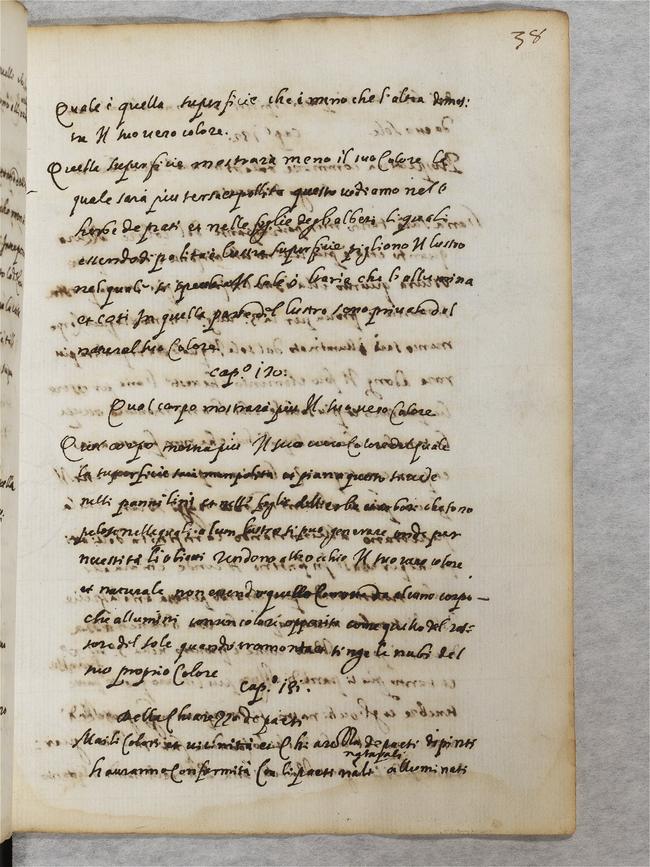 38
Quale è quella superficie che è meno che l'altra dimos:
tra Il suo vero colore.
Quella superficie mostrarà meno il suo Colore la
quale sarà piu tersa et polita questo vediamo nell'
herbe de prati et nelle foglie degl'alberi li quali
essendo di polita è lustra superficie pigliono Il lustro
nel quale si specchia Il sole ò l'aria che l'allumina
et cosi In quella parte del lustro sono private del
natural suo Colore.
cap.º 120:
Qual corpo mostrarà piu Il suo vero Colore
Quel corpo mostra piu Il suo vero Colore del quale
la superficie sarà men polita et piana questo si vede
nelli panni lini et nelle foglie dell'erbe et arbori che sono
pelose nelle quali alcun lustro si puo generare onde per
necessità li obietti rendono all'occhio Il suo vero colore
et naturale non essendo quello corrotto da alcuno corpo
che allumini con un colore opposito come quello del ros:
sore del sole quando tramonta et tinge le nubi del
suo proprio Colore
cap.º 121.
Della Chiarezza de paesi
Mai li Colori et vivacità et Chiarezza de paesi dipinti
naturali
haveranno Conformità Con li paesi alluminati